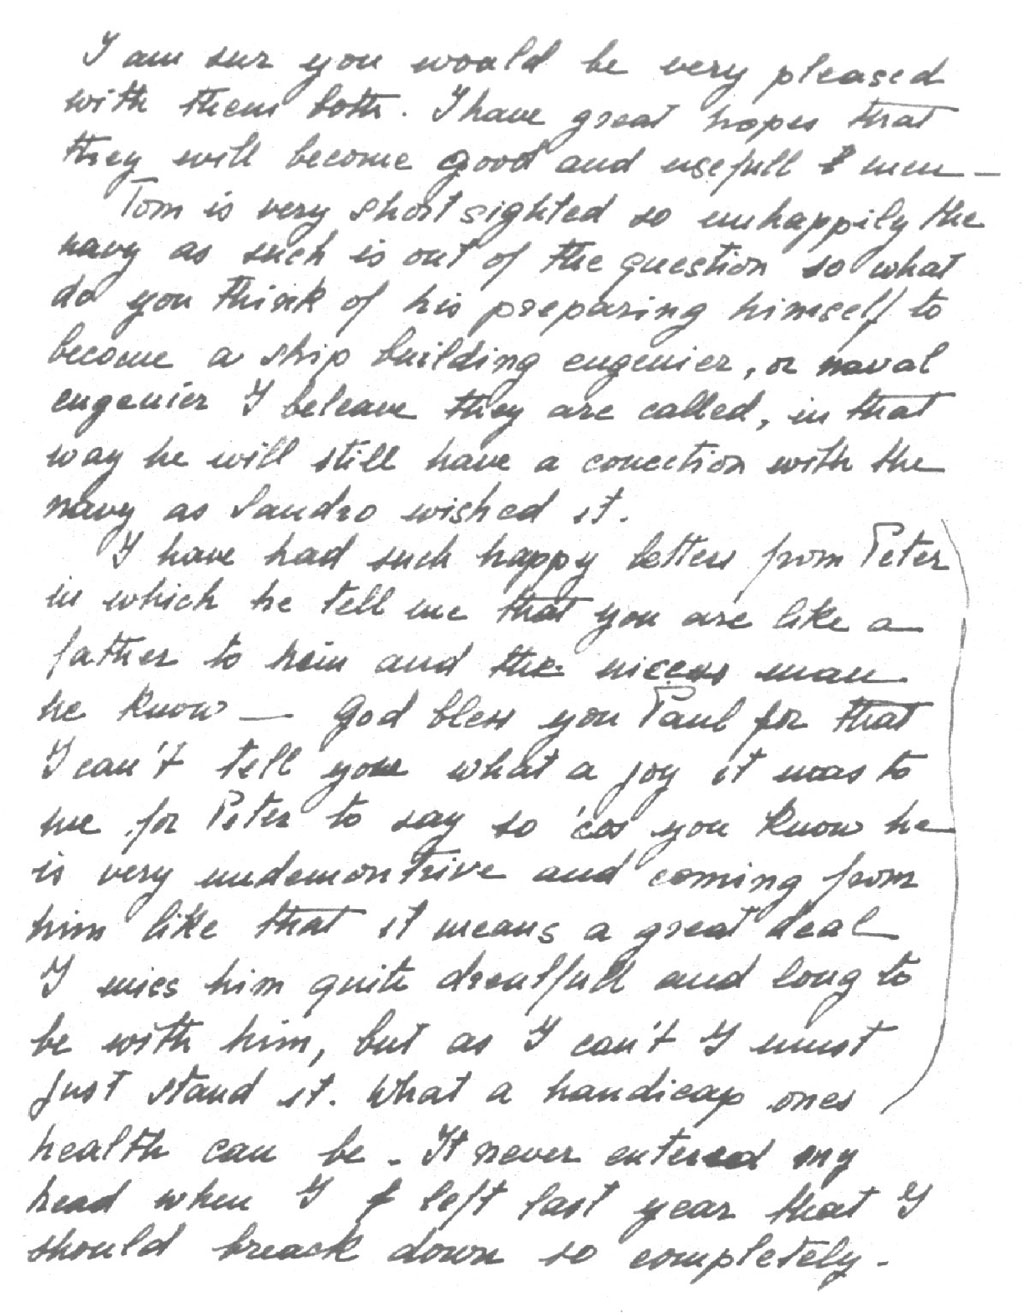 I am sur you would be very pleased
with them both. I have great hopes that
they will become good and usefull men —
Tom is very short sighted so unhappily the
navy as such is out of the question so what
do you think of his preparing himself to
become a ship building engenier, or naval
engenier I beleave they are called, in that
way he will still have a conection with the
navy as Sandro wished it.
I have had such happy letters from Peter
in which he tell me that you are like a
father to him and the nicess man
he know — God bless you Paul for that
I can't tell you what a joy it was to
me for Peter to say so 'cos you know he
is very undemontrive and coming from
him like that it means a great deal
I mics him quite dreatfull and long to
be with him, but as I can't I must
just stand it. What a handicap ones
health can be. It never entered my
head when I left last year that I
should breack down so completely.